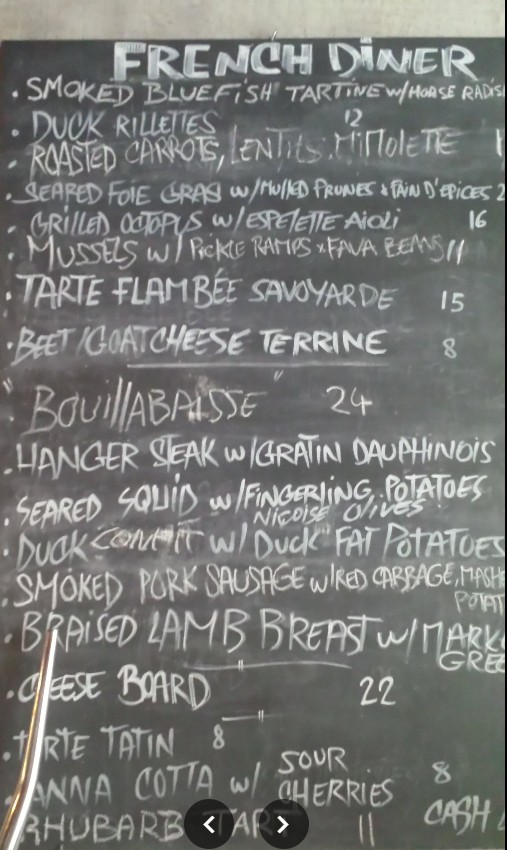 FRENCH DINER
• SMOKED BLUEFISH TARTINE w/HORSE RADIS
• DUCK RILLETTES 12
• ROASTED CARROTS, LENTILS, MIMOLETTE 1
• SEARED FOIE GRAS w/MULLED PRUNES & PAIN D'EPICES 2
• GRILLED OCTOPUS w/ESPELETTE AIOLI 16
• MUSSELS w/ PICKLE RAMPS & FAVA BEANS 11
• TARTE FLAMBÉE SAVOYARDE 15
• BEET/GOATCHEESE TERRINE 8
"BOUILLABAISSE" 24
• HANGER STEAK w/GRATIN DAUPHINOIS
• SEARED SQUID w/FINGERLING POTATOES
NIÇOISE OLIVES
• DUCK CONFIT w/ DUCK FAT POTATOES
• SMOKED PORK SAUSAGE w/RED CABBAGE, MASH
POTAT
• BRAISED LAMB BREAST w/MARK
GREE
• CHEESE BOARD 22
• TARTE TATIN 8
ANNA COTTA w/ SOUR CHERRIES 8
RHUBARB TAR 11
CASH